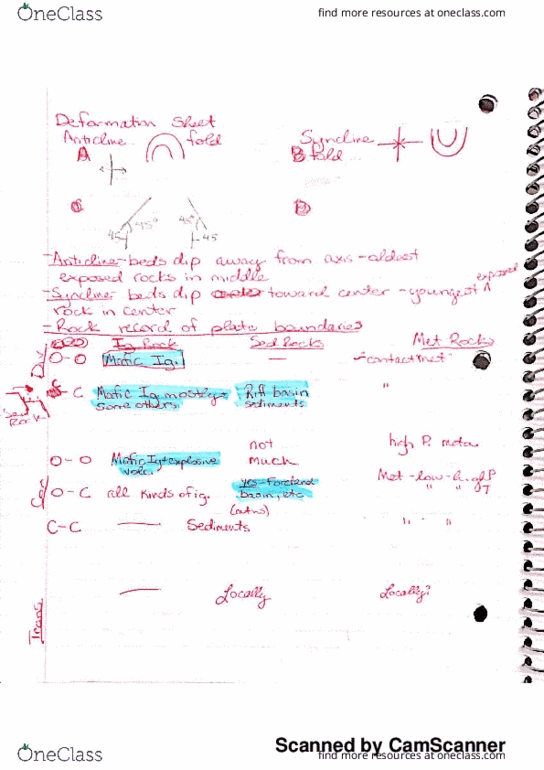 OneClass
find more resources at oneclass.com
Deformation Sheet
Anticline fold
Syncline fold
A
B
C
D
45 45° 45° 45
-Anticline-beds dip away from axis-oldest
exposed rocks in middle
-Syncline-beds dip toward center-youngest exposed
rock in center
-Rock record of plate boundaries
Ig Rock Sed Rocks Met Rocks
Div
O-O Mafic Ig. — -"contact met"
C-C Mafic Ig mostly, Rift basin "
some others sediments
not high P. meta
O-O Mafic Ig+explosive much
volc.
Con
O-C all kinds of ig. yes-Foreland Met-low-high P
basin, etc " " T
(mtns)
C-C — Sediments " " "
Trans
— Locally Locally?
Scanned by CamScanner
OneClass
find more resources at oneclass.com